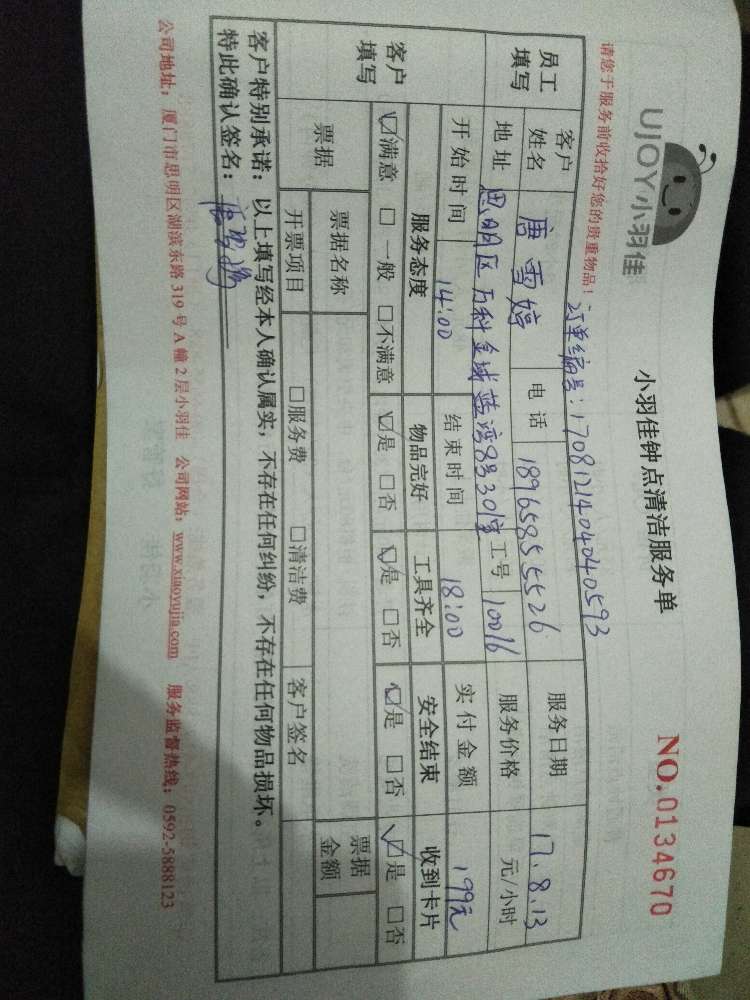 UJOY小羽佳
小羽佳钟点清洁服务单
NO.0134670
请您于服务前收拾好您的贵重物品！
订单编号：170812140404040593
员工填写 客户姓名 唐雪婷 电话 18965855526 服务日期 17.8.13
地址 思明区万科金域蓝湾8号301室 工号 10016 服务价格 元/小时
客户填写 开始时间 14:00 结束时间 18:00 实付金额 199元
服务态度 物品完好 工具齐全 安全结束 收到卡片
☑满意 □一般 □不满意 ☑是 □否 ☑是 □否 ☑是 □否 ☑是 □否
票据 票据名称 票据金额
开票项目 □服务费 □清洁费 客户签名
客户特别承诺：以上填写经本人确认属实，不存在任何纠纷，不存在任何物品损坏。
特此确认签名：唐雪婷
公司地址：厦门市思明区湖滨东路319号A幢2层小羽佳 公司网站：www.xiaoyujia.com 服务监督热线：0592-5888123